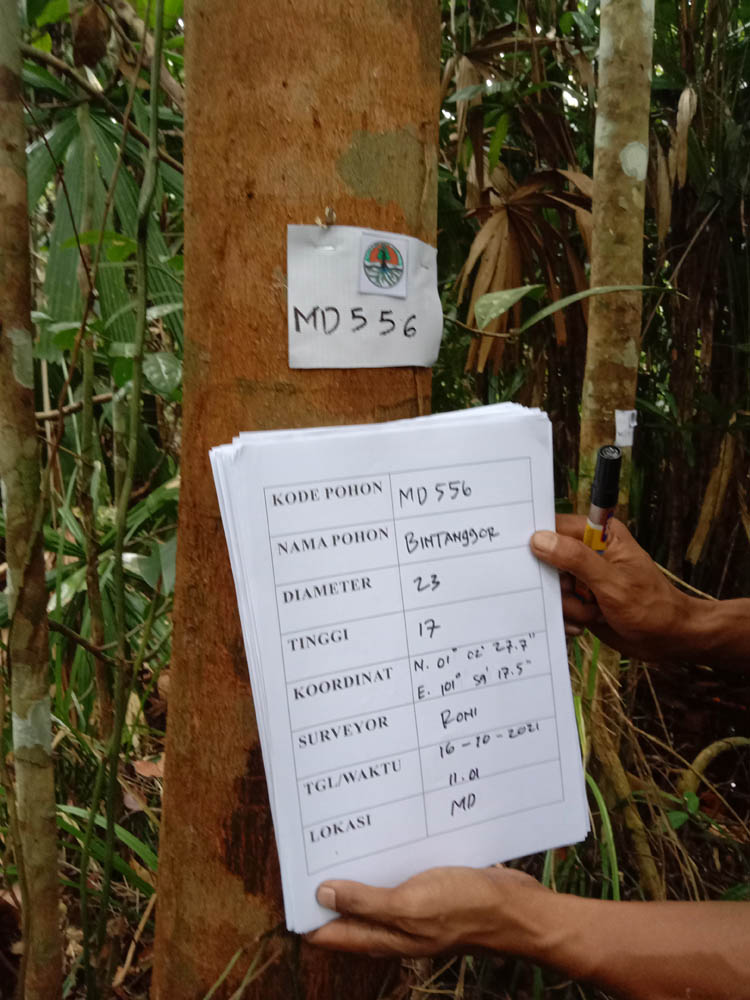 MD 556
KODE POHON MD 556
NAMA POHON BINTANGGOR
DIAMETER 23
TINGGI 17
KOORDINAT N. 01° 02' 27.7"
E. 101° 59' 17.5"
SURVEYOR RONI
TGL/WAKTU 16-10-2021
11.01
LOKASI MD